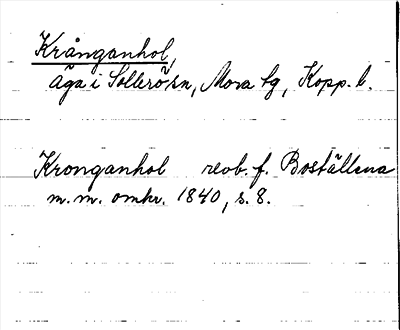 Krånganhol,
äga i Sollerö sn, Mora tg, Kopp. l.
Kronganhol reob. f. Boställena
m.m. omkr. 1840, s. 8.